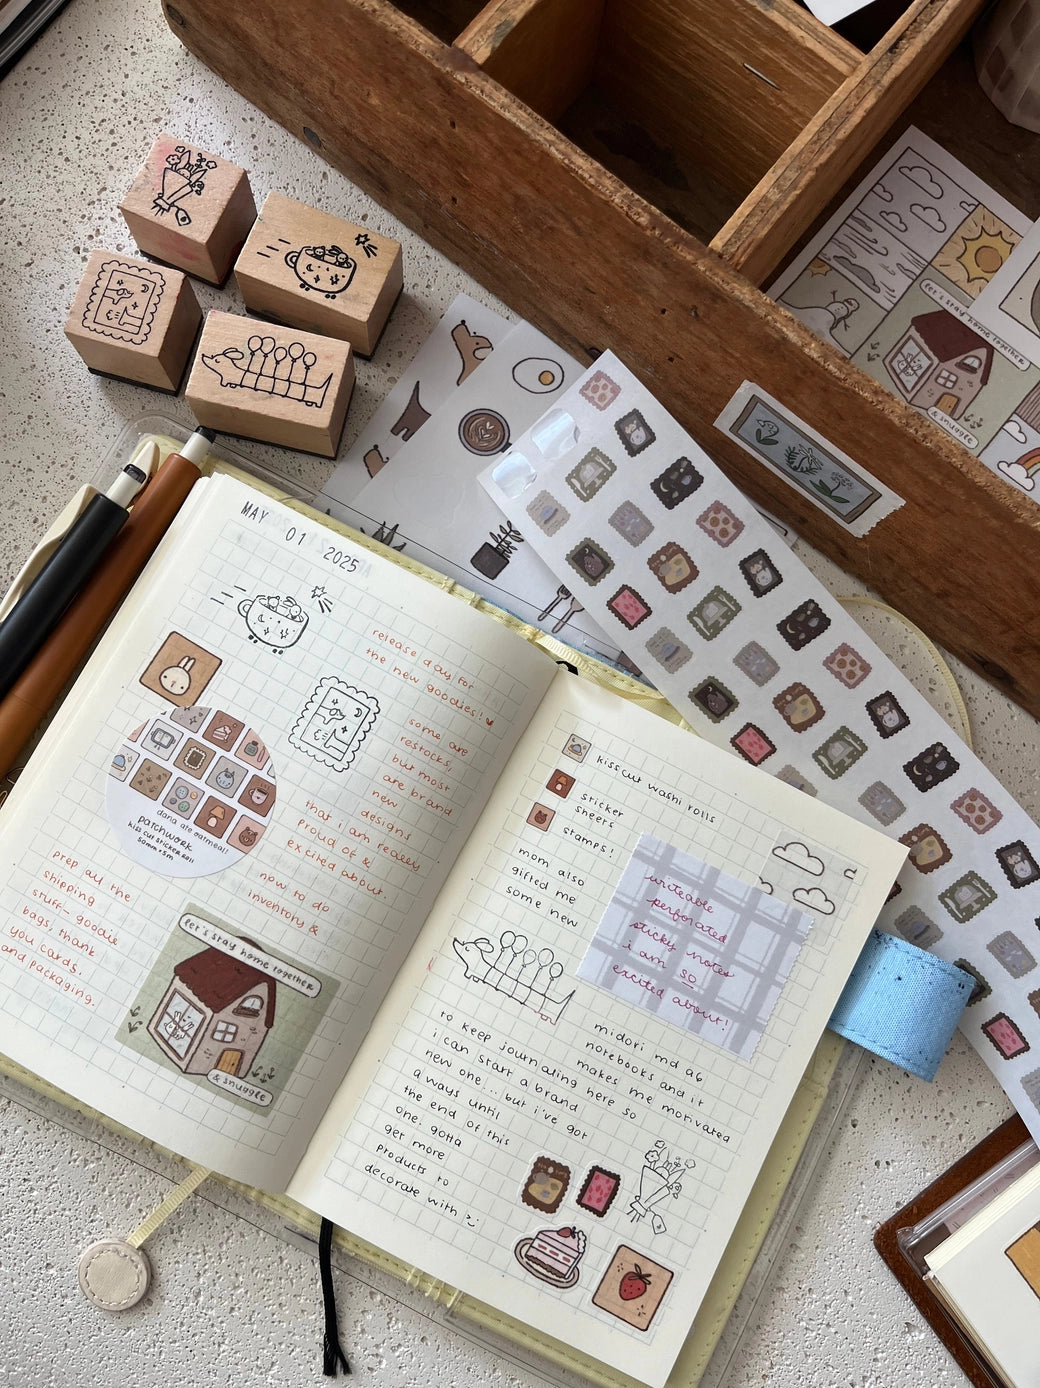 let's stay home together
& snuggle
MAY 01 2025
release day for
the new goodies!
some are
restocks,
but most
are brand
new
designs
that i am really
proud of &
excited about.
now to do
inventory &
prep all the
shipping
stuff- goodie
bags, thank
you cards.
and packaging.
dana ate oatmeal!
patchwork
kiss cut sticker roll
50mm x 5m
let's stay home together
& snuggle
kisscut washi rolls
sticker
sheets
stamps!
mom also
gifted me
some new
writeable
perforated
sticky notes
i am so
excited about!
midori md a6
notebooks and it
makes me motivated
to keep journaling here so
i can start a brand
new one... but i've got
a ways until
the end of this
one. gotta
get more
products to
decorate with :)